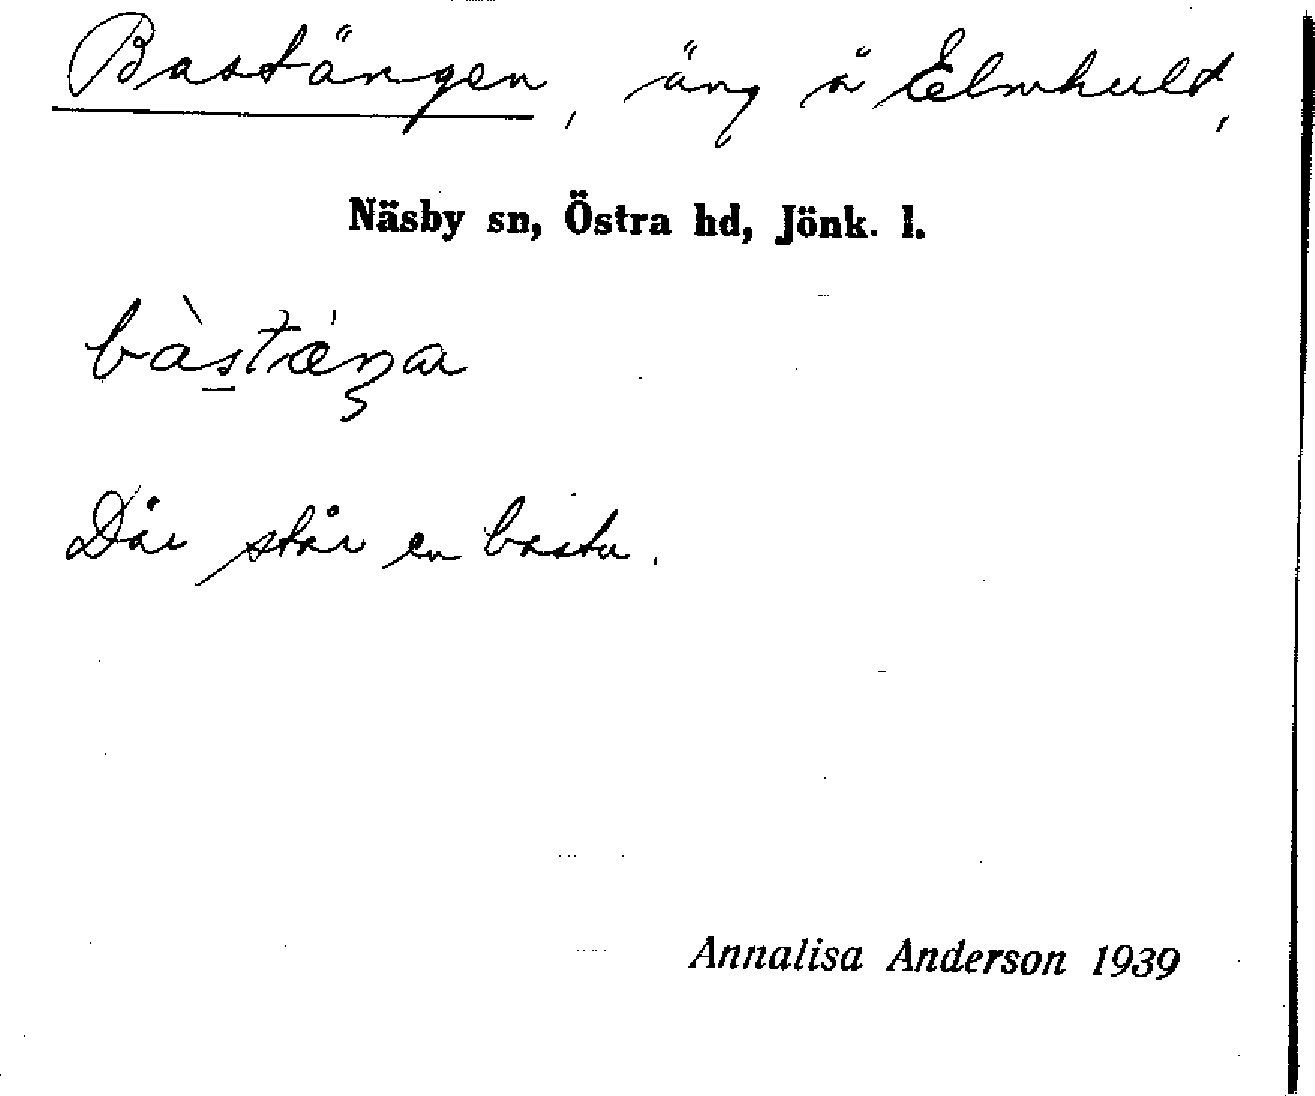 Bastängen, äng å Elmhult,
Näsby sn, Östra hd, Jönk. l.
bàstæ̀ŋa
Där står en bastu.
Annalisa Anderson 1939